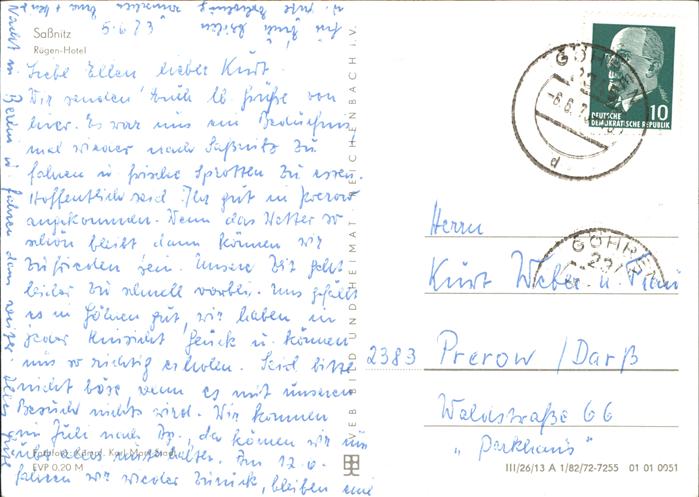 Saßnitz
Rügen-Hotel
5.6.73
Liebe Ellen lieber Kurt.
Wir senden Euch lb Grüße von
hier. Es war uns ein Bedürfnis
mal wieder nach Saßnitz zu
fahren u frische Sprotten zu essen.
Hoffentlich seid Ihr gut in Prerow
angekommen. Wenn das Wetter so
schön bleibt dann können wir
zufrieden sein. Unsere Zeit geht
leider zu schnell vorbei. Uns gefällt
es in Göhren gut, wir haben in
jeder Hinsicht Glück u. können
uns so richtig erholen. Seid bitte
nicht böse, wenn es mit unserem
Besuch nichts wird. Wir kommen
im Juli nach Bp., da können wir uns
über alles unterhalten. Am 12.6.
fahren wir wieder zurück, bleiben eine
Nacht in Berlin u fahren dann weiter.
EVP 0,20 M
VEB BILD UND HEIMAT REICHENBACH i. V.
GÖHREN
-6.6.7
d
DEUTSCHE
DEMOKRATISCHE REPUBLIK
10
GÖHREN
Herrn
Kurt Weber u. Frau
2383 Prerow / Darß
Waldstraße 66
"Parkhaus"
III/26/13 A 1/82/72-7255 01 01 0951